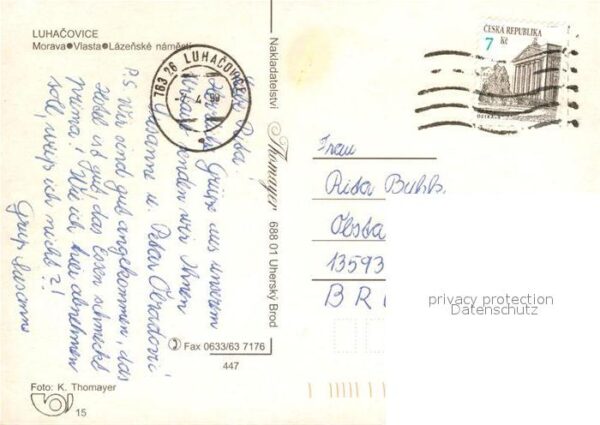 LUHAČOVICE
Morava●Vlasta●Lázeňské náměstí
Herzliche Grüße aus unserem
Urlaub senden wir Ihnen
Susanne u. Peter
P.S Wir sind gut angekommen, das
Hotel ist gut, das Essen schmeckt
prima! Wie ich hier abnehmen
soll, weiß ich nicht?!
Gruß Susanne
Foto: K. Thomayer
15
763 26 LUHAČOVICE
Nakladatelství Thomayer 688 01 Uherský Brod
Fax 0633/63 7176
447
ČESKÁ REPUBLIKA
7 Kč
OSTRAVA
Frau
13593
privacy protection
Datenschutz